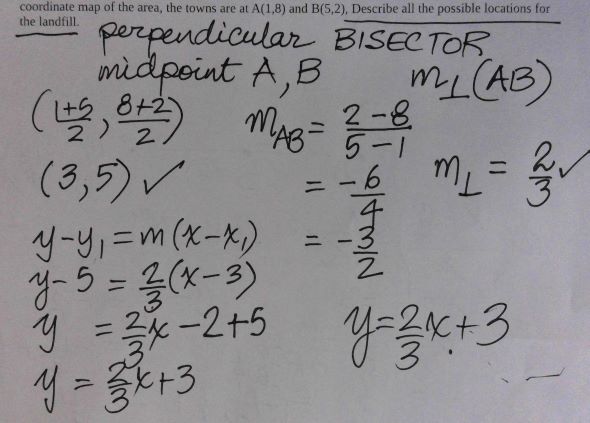 coordinate map of the area, the towns are at A(1,8) and B(5,2), Describe all the possible locations for
the landfill.
perpendicular BISECTOR
midpoint A, B
m⊥(AB)
(1+5/2, 8+2/2)
(3,5) ✓
m_AB = 2-8/5-1
= -6/4
= -3/2
m⊥ = 2/3 ✓
y-y₁ = m(x-x₁)
y-5 = 2/3(x-3)
y = 2/3x -2+5
y = 2/3x+3
y=2/3x+3